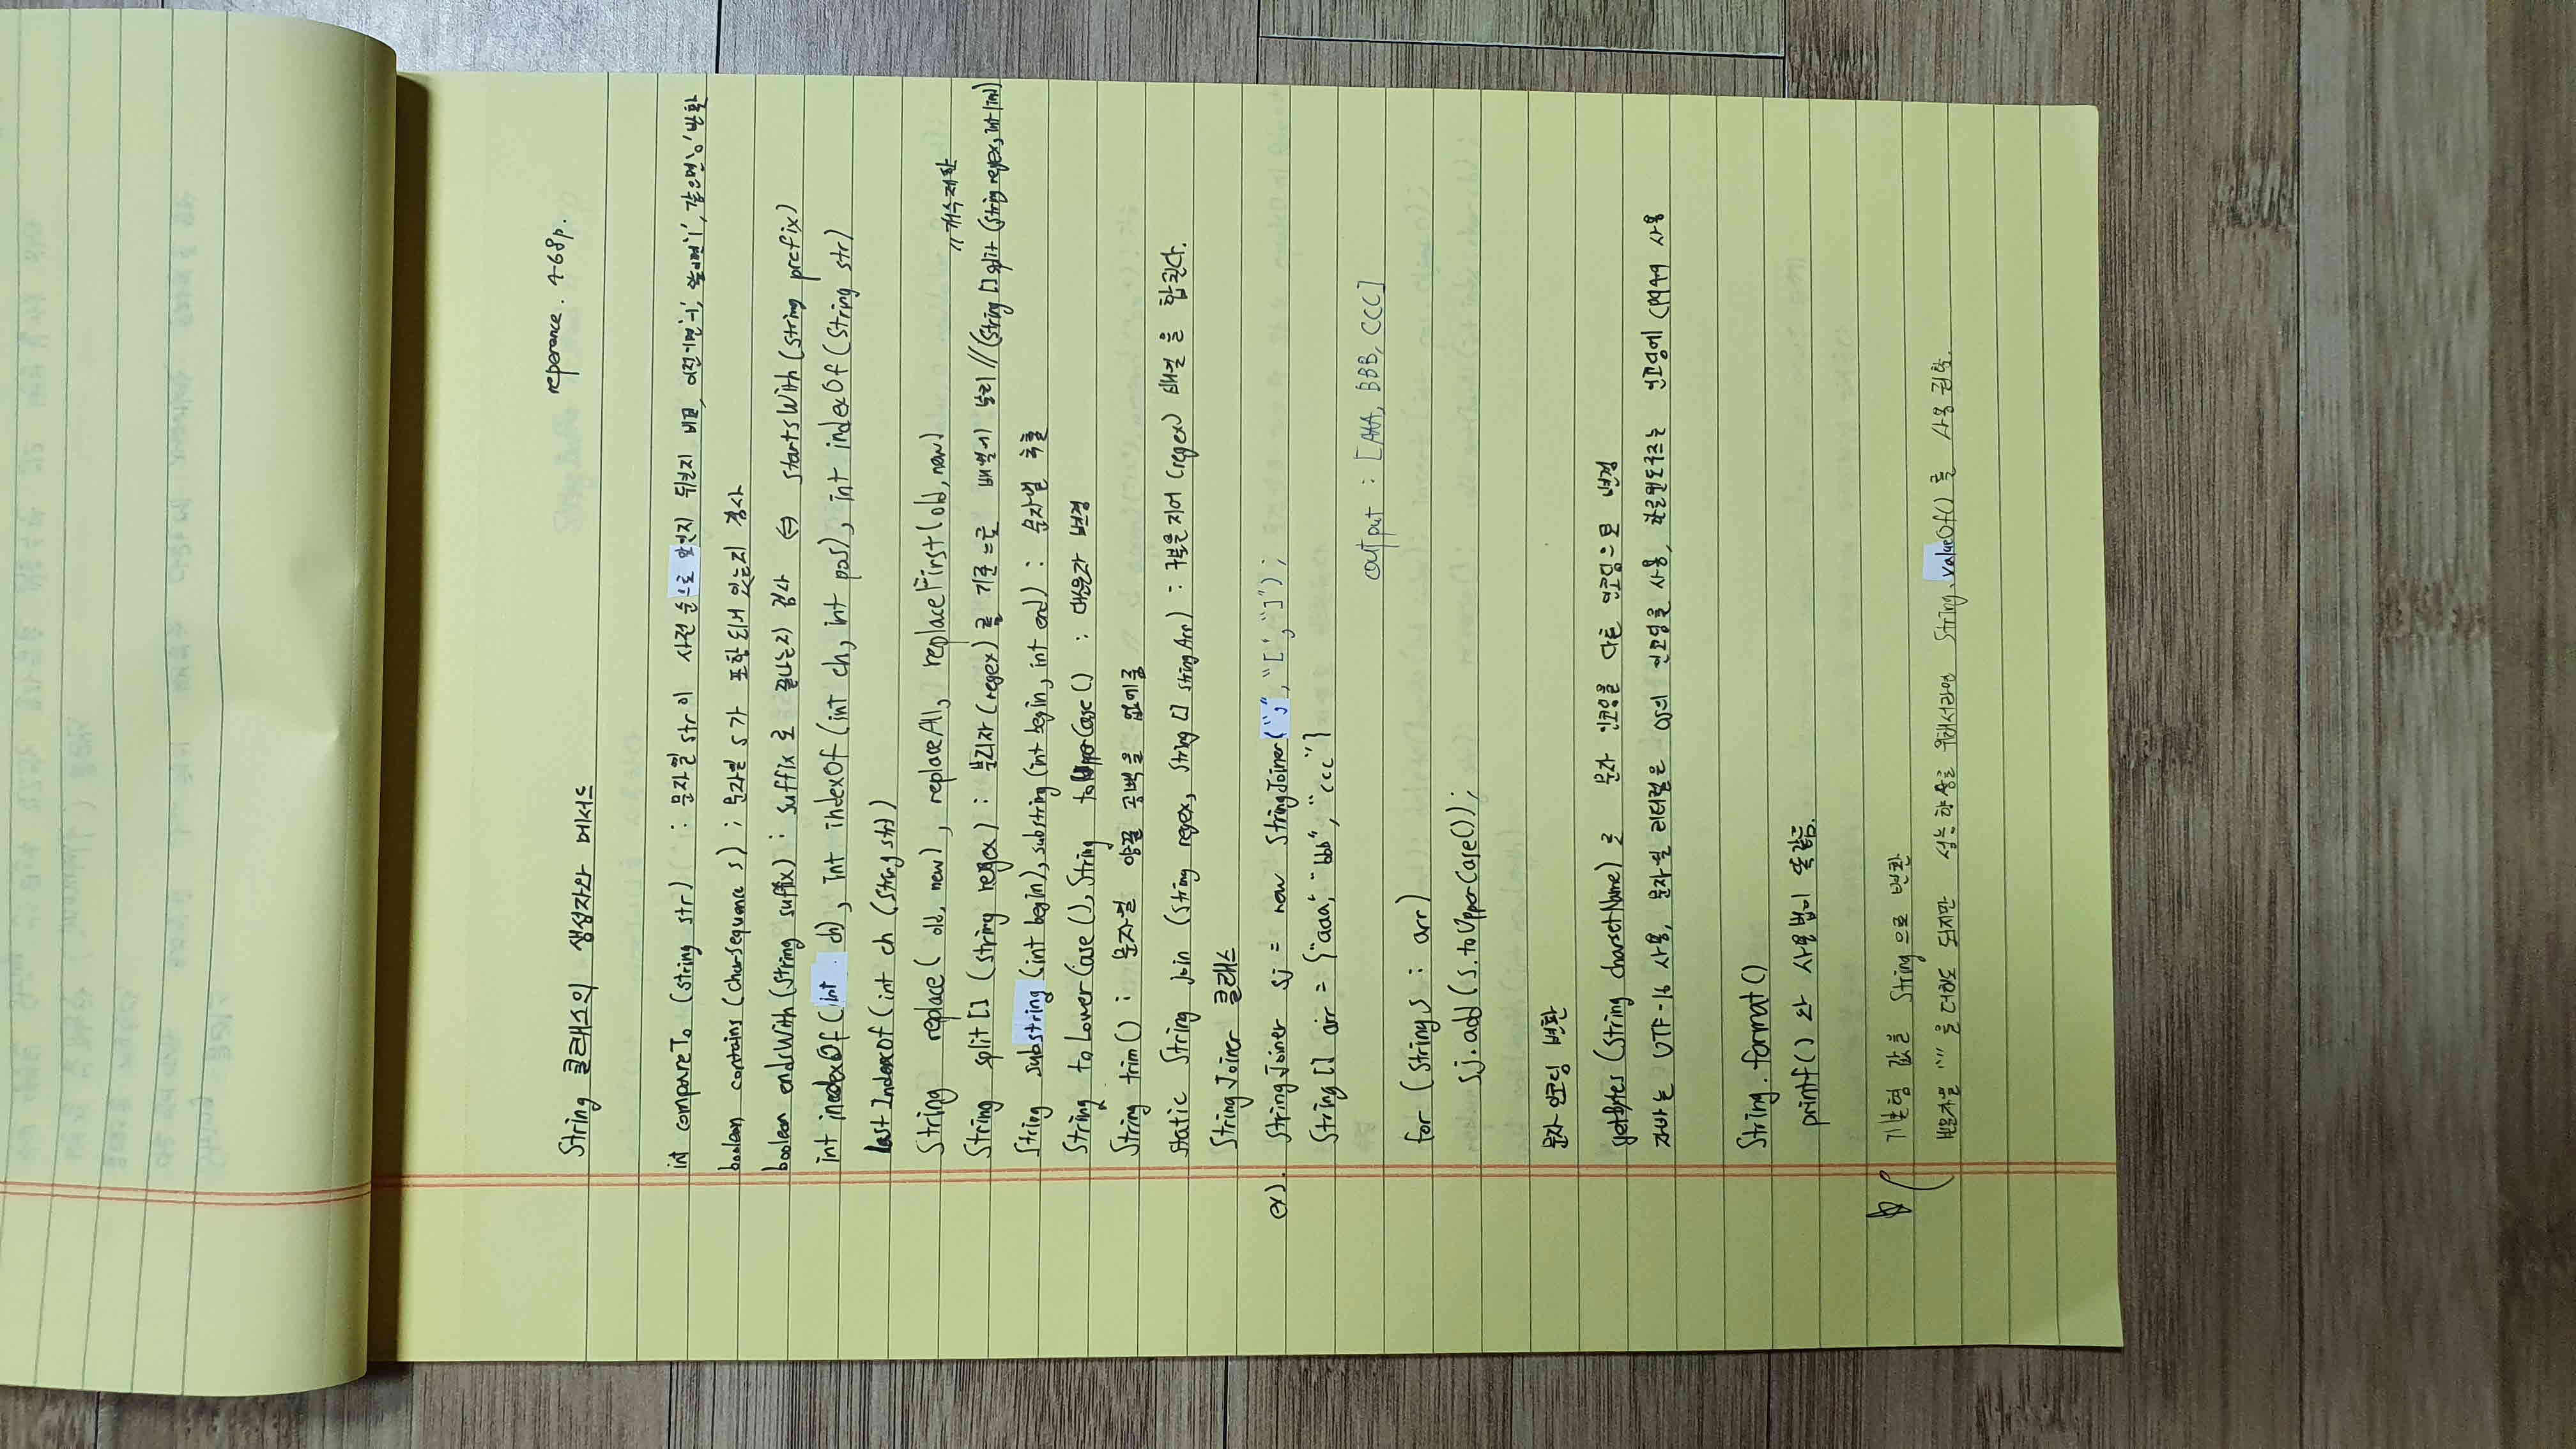 reperence. 468p.
String 클래스의 생성자와 메서드
int compareTo (String str) : 문자열 str이 사전 순으로 앞인지 뒤인지 비교, 이전이면 '-1', 앞이면 '1', 같으면 '0' 반환
boolean contains (charSequence s) ; 문자열 s가 포함되어 있는지 검사
boolean endsWith (String suffix) : suffix로 끝나는지 검사 ⇔ startsWith (String prefix)
int inedexOf (int ch), int indexOf (int ch, int pos), int indexOf (String str)
lastIndexOf (int ch (String str))
String replace ( old, new), replaceAll, replaceFirst (old, new)
// 개수제한
String split [] (string regex) : 분리자 (regex) 를 기준으로 배열에 분리 // (String [] split (String regex, int lim)
String substring (int begin), substring (int begin, int end) : 문자열 추출
String toLowerCase (), String toUpperCase () : 대소문자 변경
String trim () : 문자열 양끝 공백을 없애줌
static String join (String regex, String [] stringArr) : 구분을 지어 (regex) 배열을 합친다.
StringJoiner 클래스
ex). StringJoiner sj = new StringJoiner (",", "[", "]") ;
String [] arr = {"aaa", "bbb", "ccc"}
output : [AAA, BBB, CCC]
for (String s : arr)
sj.add (s.toUpperCase());
문자 인코딩 변환
getBytes (String charsetName) 로 문자 인코딩을 다른 인코딩으로 변경
자바는 UTF-16 사용, 문자열 리터럴은 OS의 인코딩을 사용, 한글윈도우즈는 인코딩에 CP949 사용
String.format ()
printf () 와 사용법이 똑같음.
☆ 기본형 값을 String으로 변환
빈문자열 "" 을 더해도 되지만 성능향상을 위해서라면 String.valueOf() 를 사용 권함.